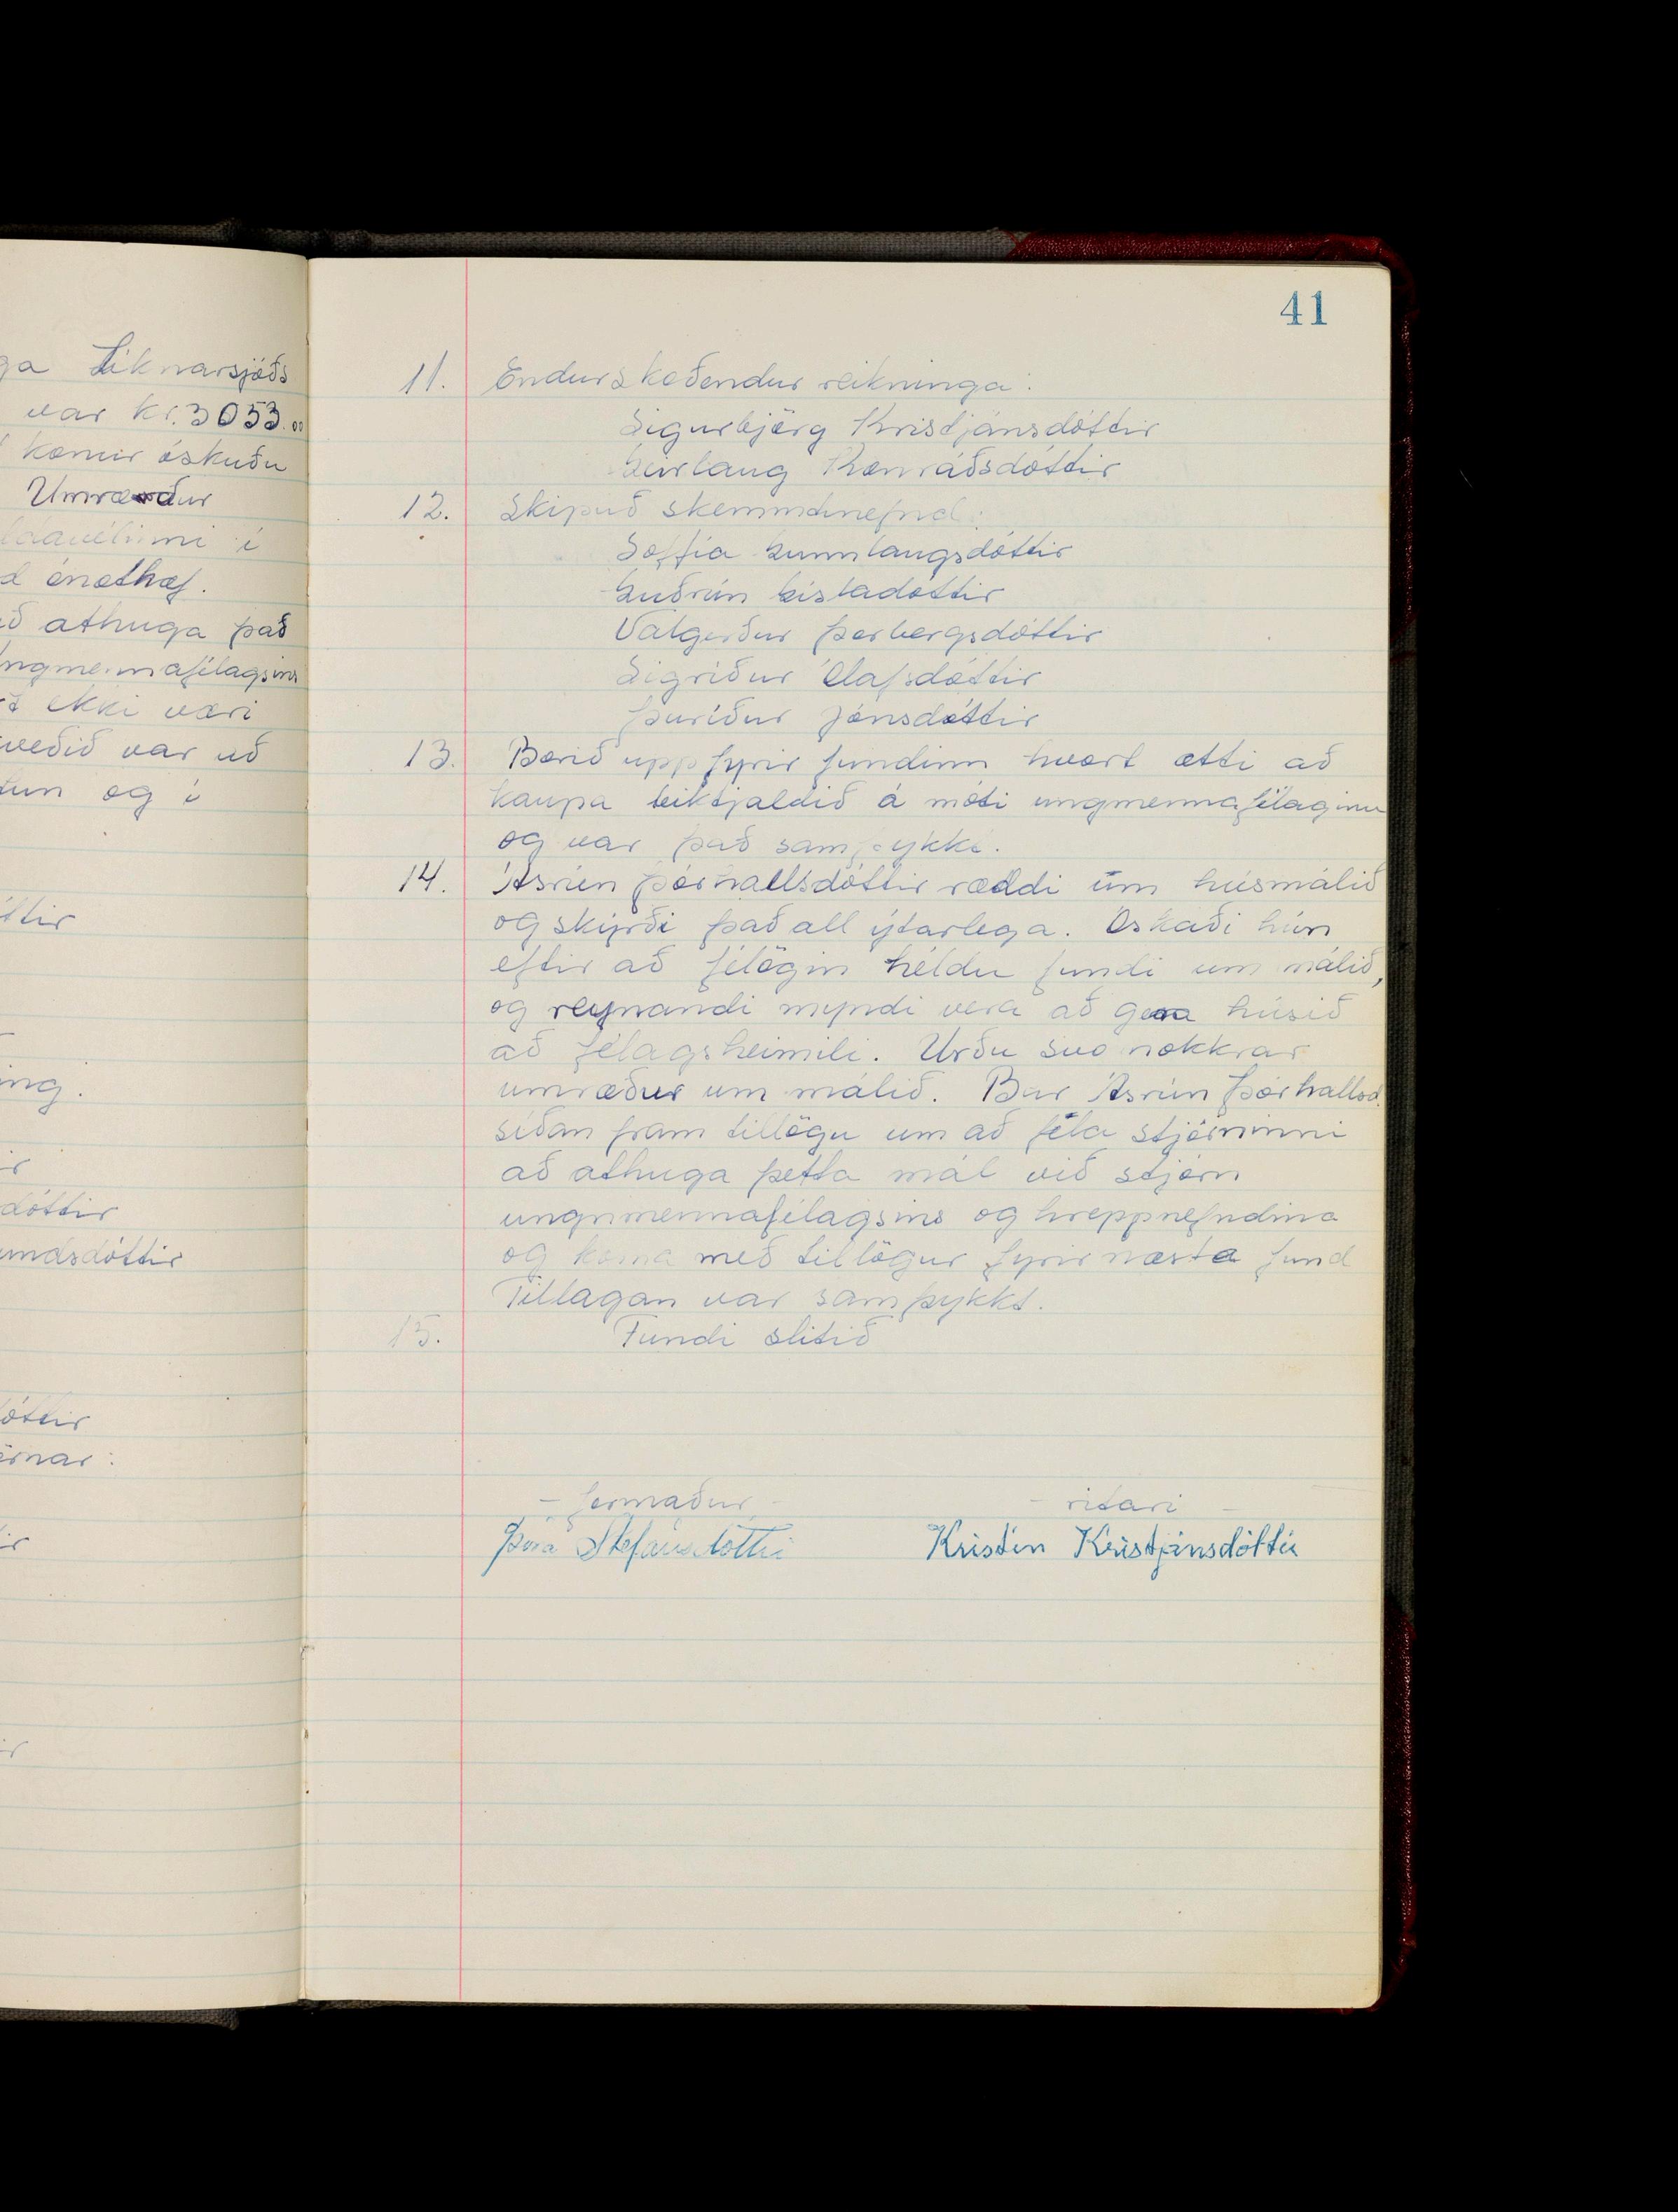 ga Líknarsjóðs
var kr. 3053.00
konur óskuðu
Umræður
í
ónothæf.
athuga það
ngmennafélagsins
ekki væri
veðið var að
tun og í
ttir
ing.
ir
dóttir
undsdóttir
óttir
órnar:
ir
ir
41
11. Endurskoðendur reikninga:
Sigurbjörg Kristjánsdóttir
Geirlaug Konráðsdóttir
12. Skipuð skemmtinefnd:
Soffía Gunnlaugsdóttir
Guðrún Gísladóttir
Valgerður Þorbergsdóttir
Sigríður Ólafsdóttir
Þuríður Jónsdóttir
13. Borið upp fyrir fundinn hvort ætti að
kaupa leiktjaldið á móti ungmennafélaginu
og var það samþykkt.
14. Ásrún Þórhallsdóttir ræddi um húsmálið
og skýrði það all ýtarlega. Óskaði hún
eftir að félögin héldu fundi um málið,
og reynandi myndi vera að gera húsið
að félagsheimili. Urðu svo nokkrar
umræður um málið. Bar Ásrún Þórhallsd.
síðan fram tillögu um að fela stjórninni
að athuga þetta mál við stjórn
ungmennafélagsins og hreppnefndina
og koma með tillögur fyrir næsta fund
Tillagan var samþykkt.
15. Fundi slitið
- formaður - - ritari -
Þóra Stefánsdóttir Kristín Kristjánsdóttir